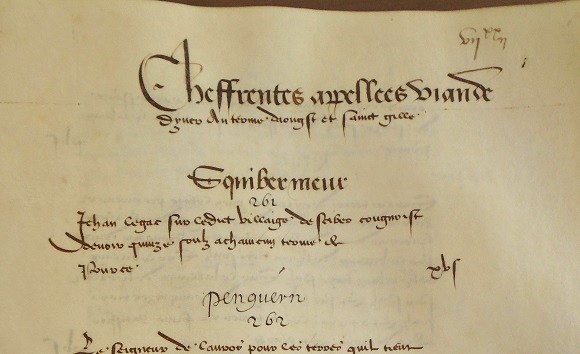 vij xx ij
Cheffrentes appellees viande
dyver au terme daougst et sainct gille
Squiber meur
261
Jehan Legac sur ledict villaige de squiber congnoist
devoir quinze soulz a chaincun terme &
Pource xv s
Penguern
262
Le seigneur de pour les terres quil tient